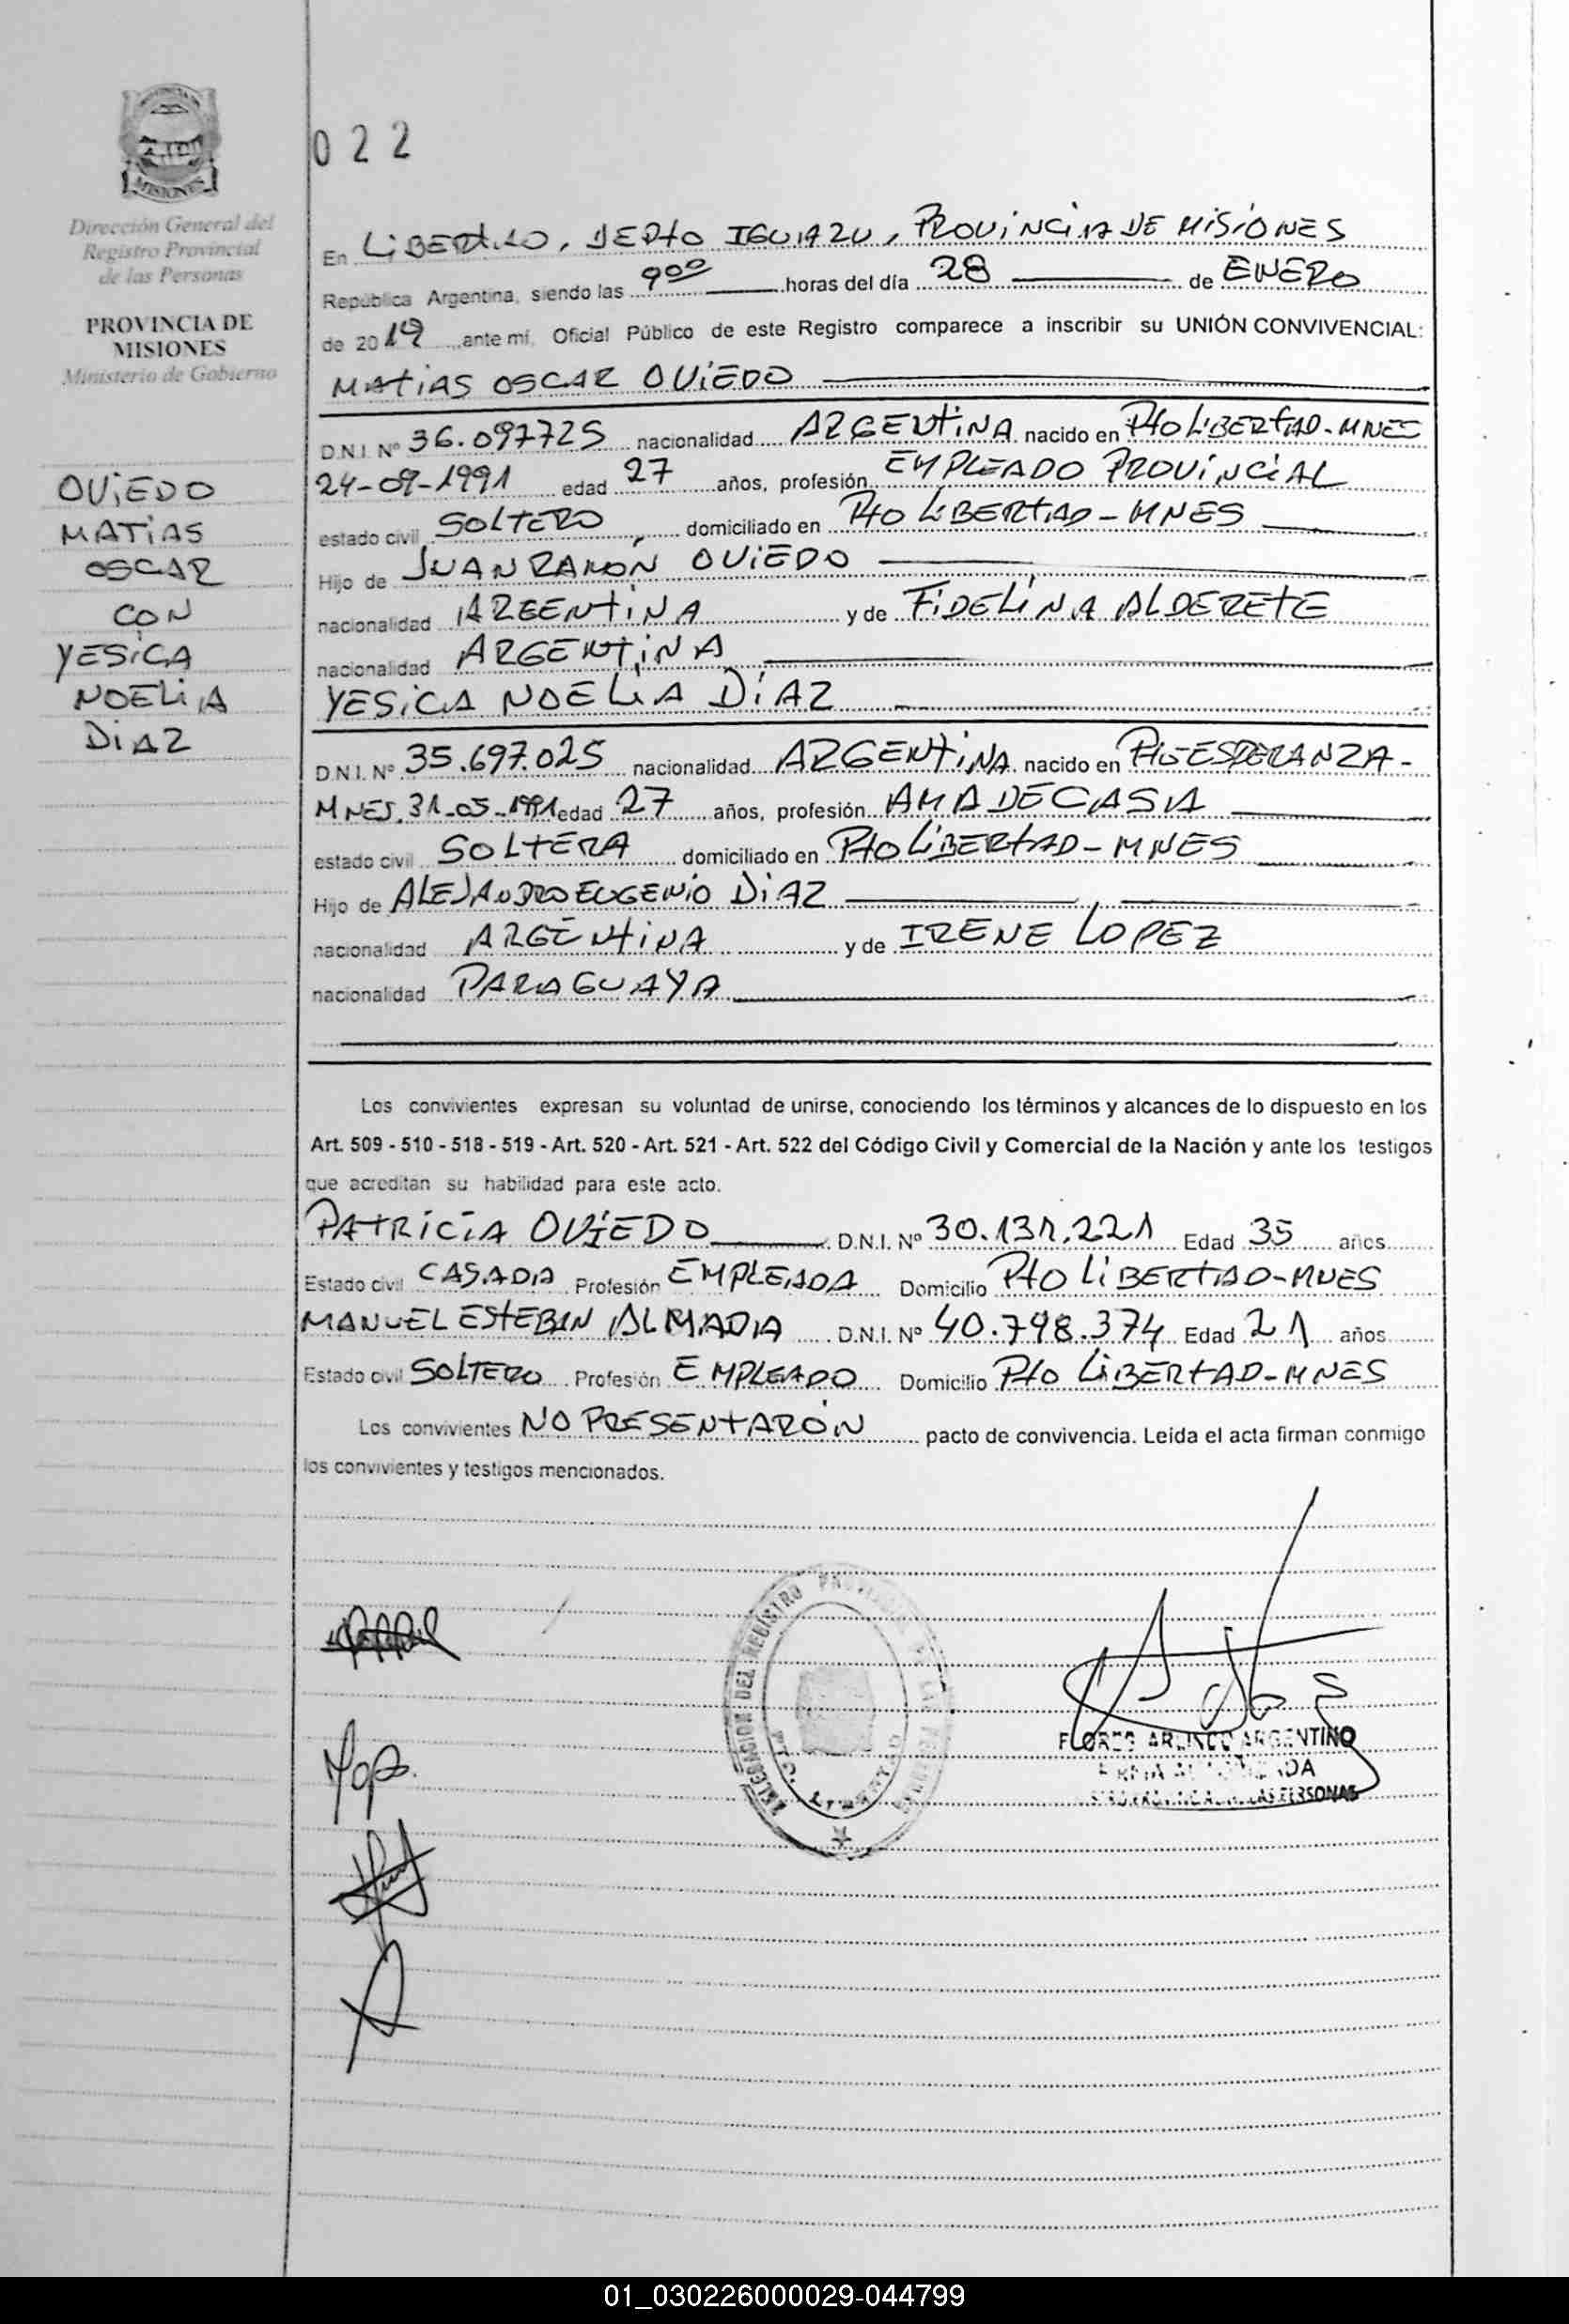 PROVINCIA DE
MISIONES
Dirección General del
Registro Provincial
de las Personas
PROVINCIA DE
MISIONES
Ministerio de Gobierno
OViEDO
MATiAS
OSCAR
CON
YESiCA
NOELiA
DiAZ
022
En LiBERtAD, DEPto IGUAZU, PROViNCiA DE MiSiONES
República Argentina, siendo las 9 00 horas del día 28 de ENERO
de 2019 ante mí, Oficial Público de este Registro comparece a inscribir su UNIÓN CONVIVENCIAL:
MAtiAS OSCAR OViEDO
D.N.I. Nº 36.097725 nacionalidad ARGENtiNA nacido en Pto LiBERtAD-MNES
24-09-1991 edad 27 años, profesión EMPLEADO PROViNCiAL
estado civil SOLTERO domiciliado en Pto LiBERTAD-MNES
Hijo de JUAN RAMÓN OViEDO
nacionalidad ARGENtiNA y de FiDELiNA ALDERETE
nacionalidad ARGENtiNA
YESiCA NOELiA DíAZ
D.N.I. Nº 35.697.025 nacionalidad ARGENtiNA nacido en Pto ESPERANZA-
MNES. 31-05-1991 edad 27 años, profesión AMA DE CASA
estado civil SOLTERA domiciliado en Pto LiBERtAD-MNES
Hijo de ALEJANDRO EUGENiO DiAZ
nacionalidad ARGENtiNA y de IRENE LOPEZ
nacionalidad PARAGUAYA
Los convivientes expresan su voluntad de unirse, conociendo los términos y alcances de lo dispuesto en los
Art. 509 - 510 - 518 - 519 - Art. 520 - Art. 521 - Art. 522 del Código Civil y Comercial de la Nación y ante los testigos
que acreditan su habilidad para este acto.
PAtRiCiA OViEDO D.N.I. Nº 30.131.221 Edad 35 años
Estado civil CASADA Profesión EMPLEADA Domicilio Pto LiBERTAD-MNES
MANUEL EStEBAN ALMADA D.N.I. Nº 40.798.374 Edad 21 años
Estado civil SOLTERO Profesión EMPLEADO Domicilio Pto LiBERtAD-MNES
Los convivientes NO PRESENtARÓN pacto de convivencia. Leida el acta firman conmigo
los convivientes y testigos mencionados.
DELEGACION DEL REGISTRO PROVINCIAL DE LAS PERSONAS
PTO. LIBERTAD
FLORES ARLINDO ARGENTINO
FIRMA AUTORIZADA
LAS PERSONAS
01_030226000029-044799